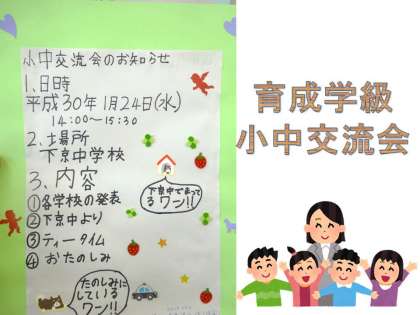 小中交流会のお知らせ
1.日時
平成30年1月24日(水)
14:00〜15:30
2.場所
下京中学校
3.内容
①各学校の発表
②下京中より
③ティータイム
④おたのしみ
下京中でまって
るワン!!
たのしみに
している
ワン!!
育成学級
小中交流会